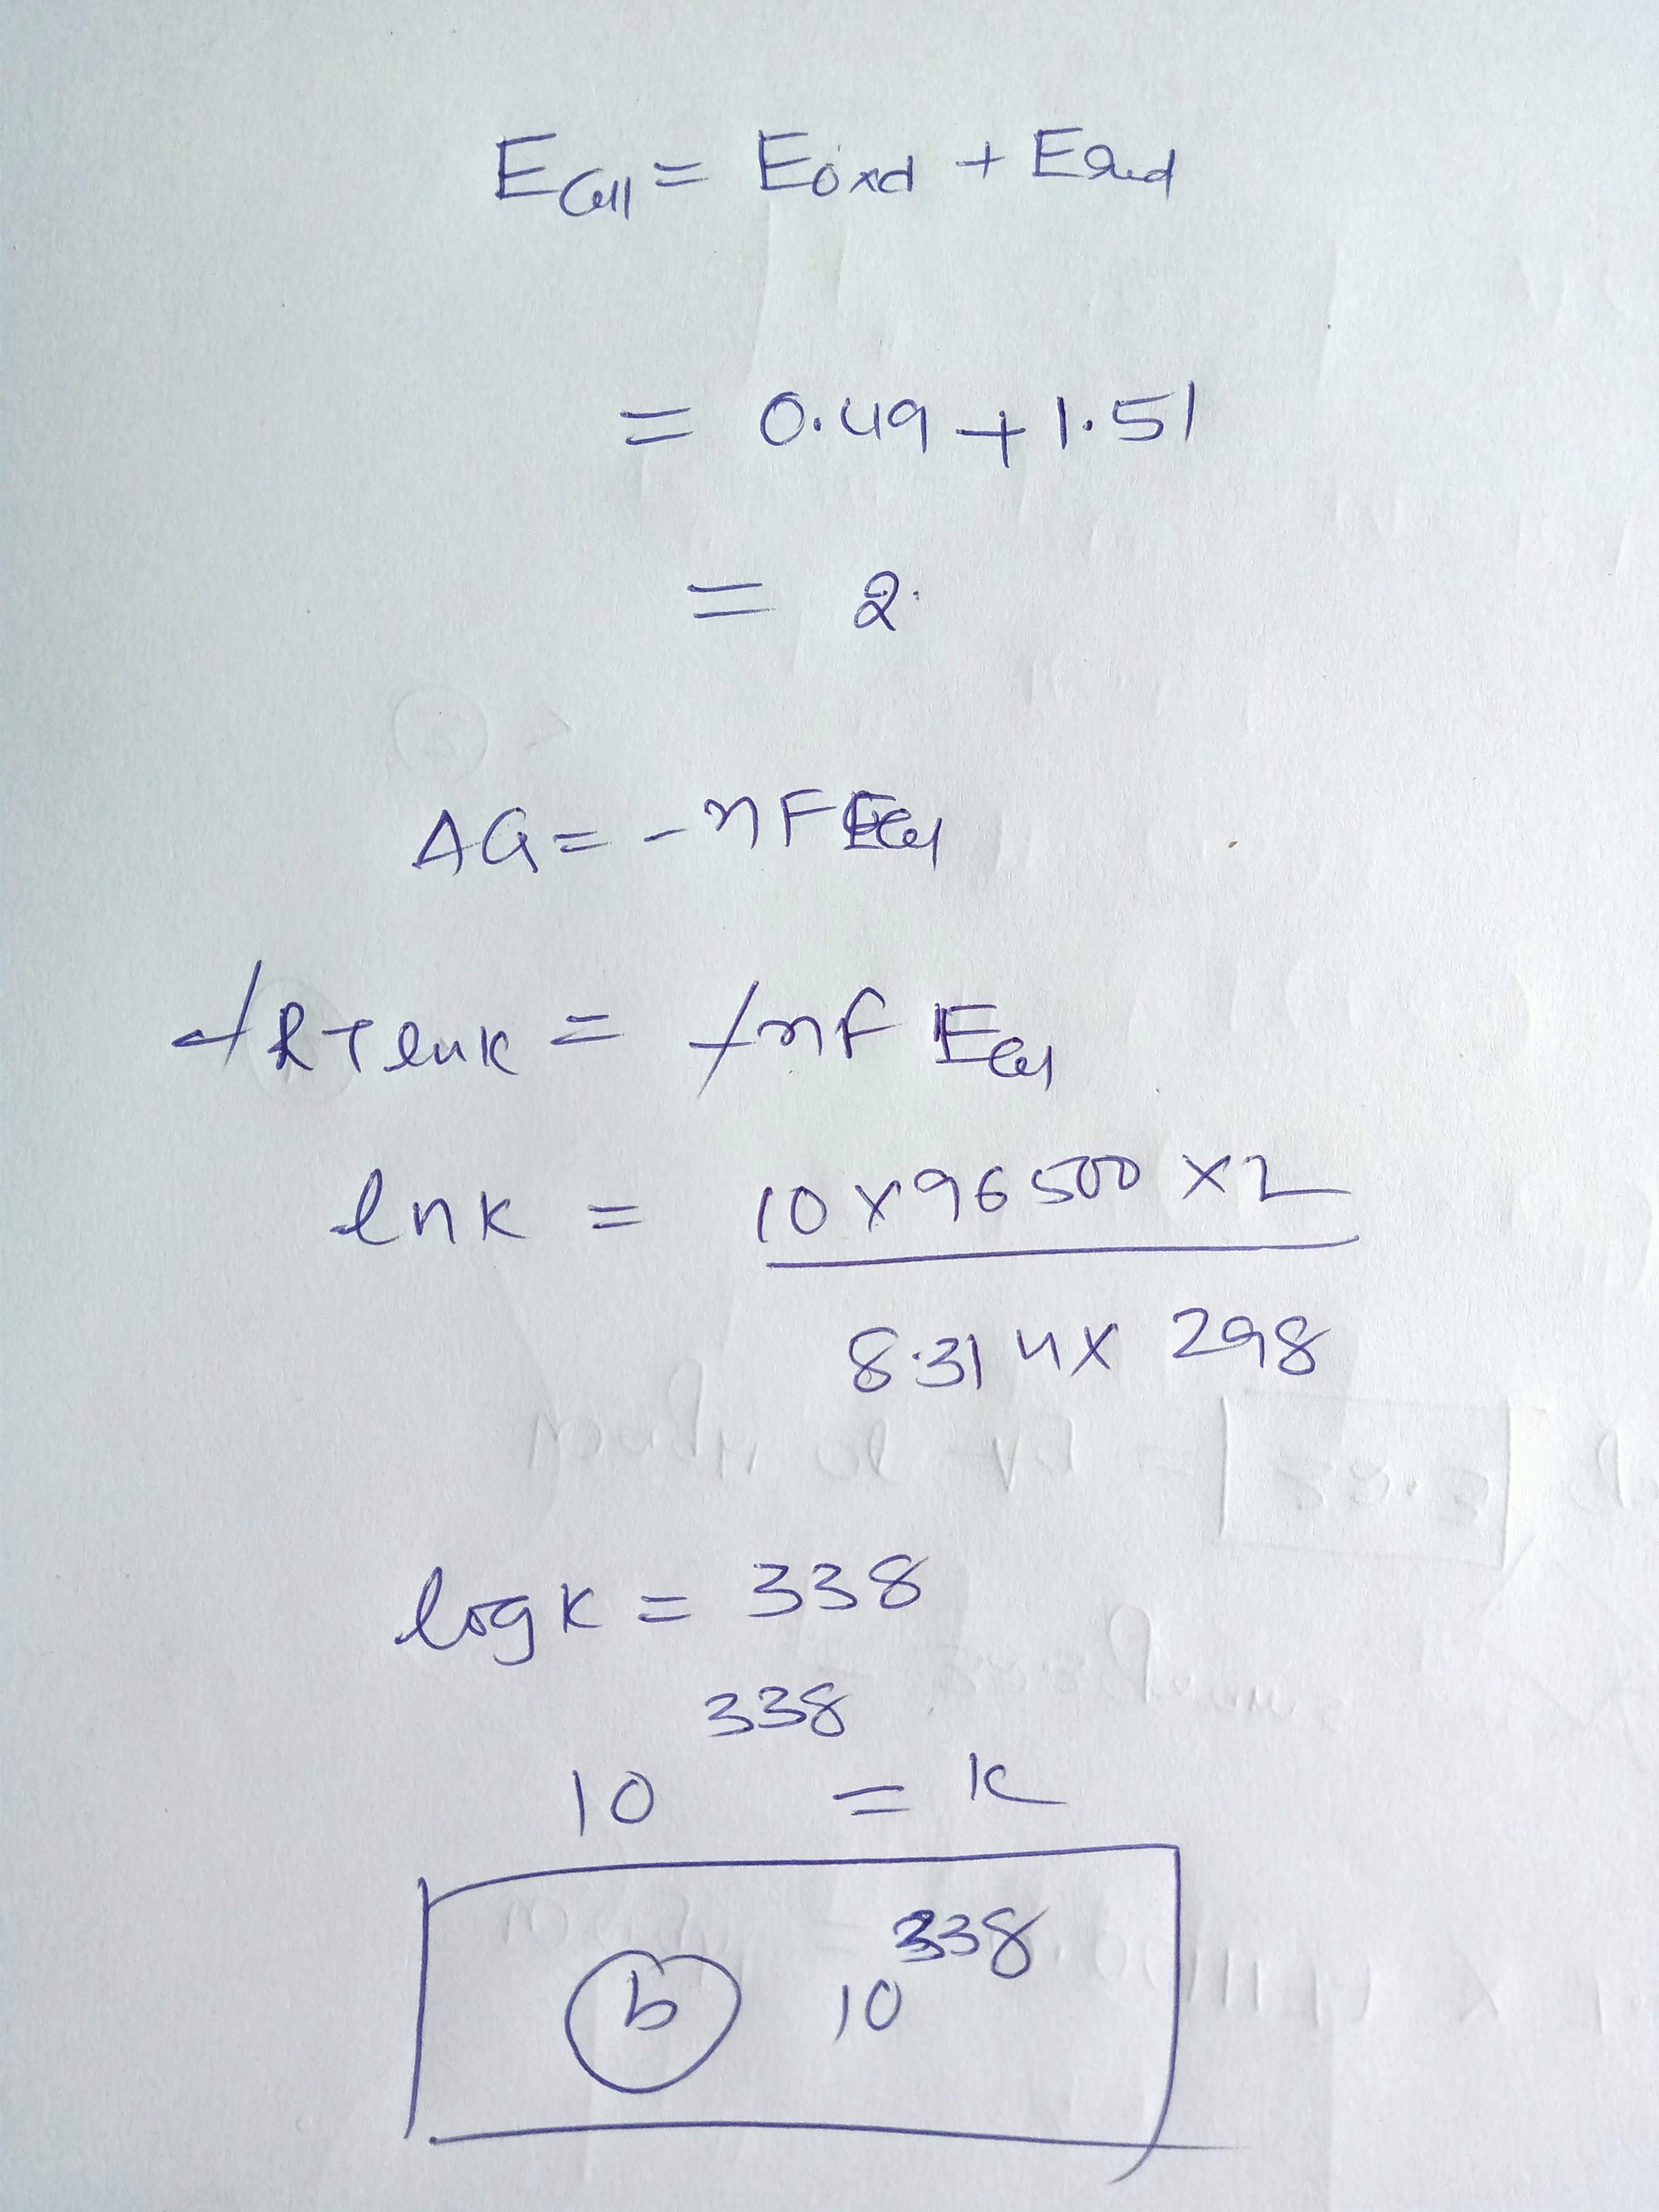 Ecell = Eoxd + Ered
= 0.49 + 1.51
= 2.
ΔG = -nFEcel
-RTlnK = -nF Ecel
lnK = 10 x 96500 x 2
8.314 x 298
logK = 338
338
10 = K
338
b 10